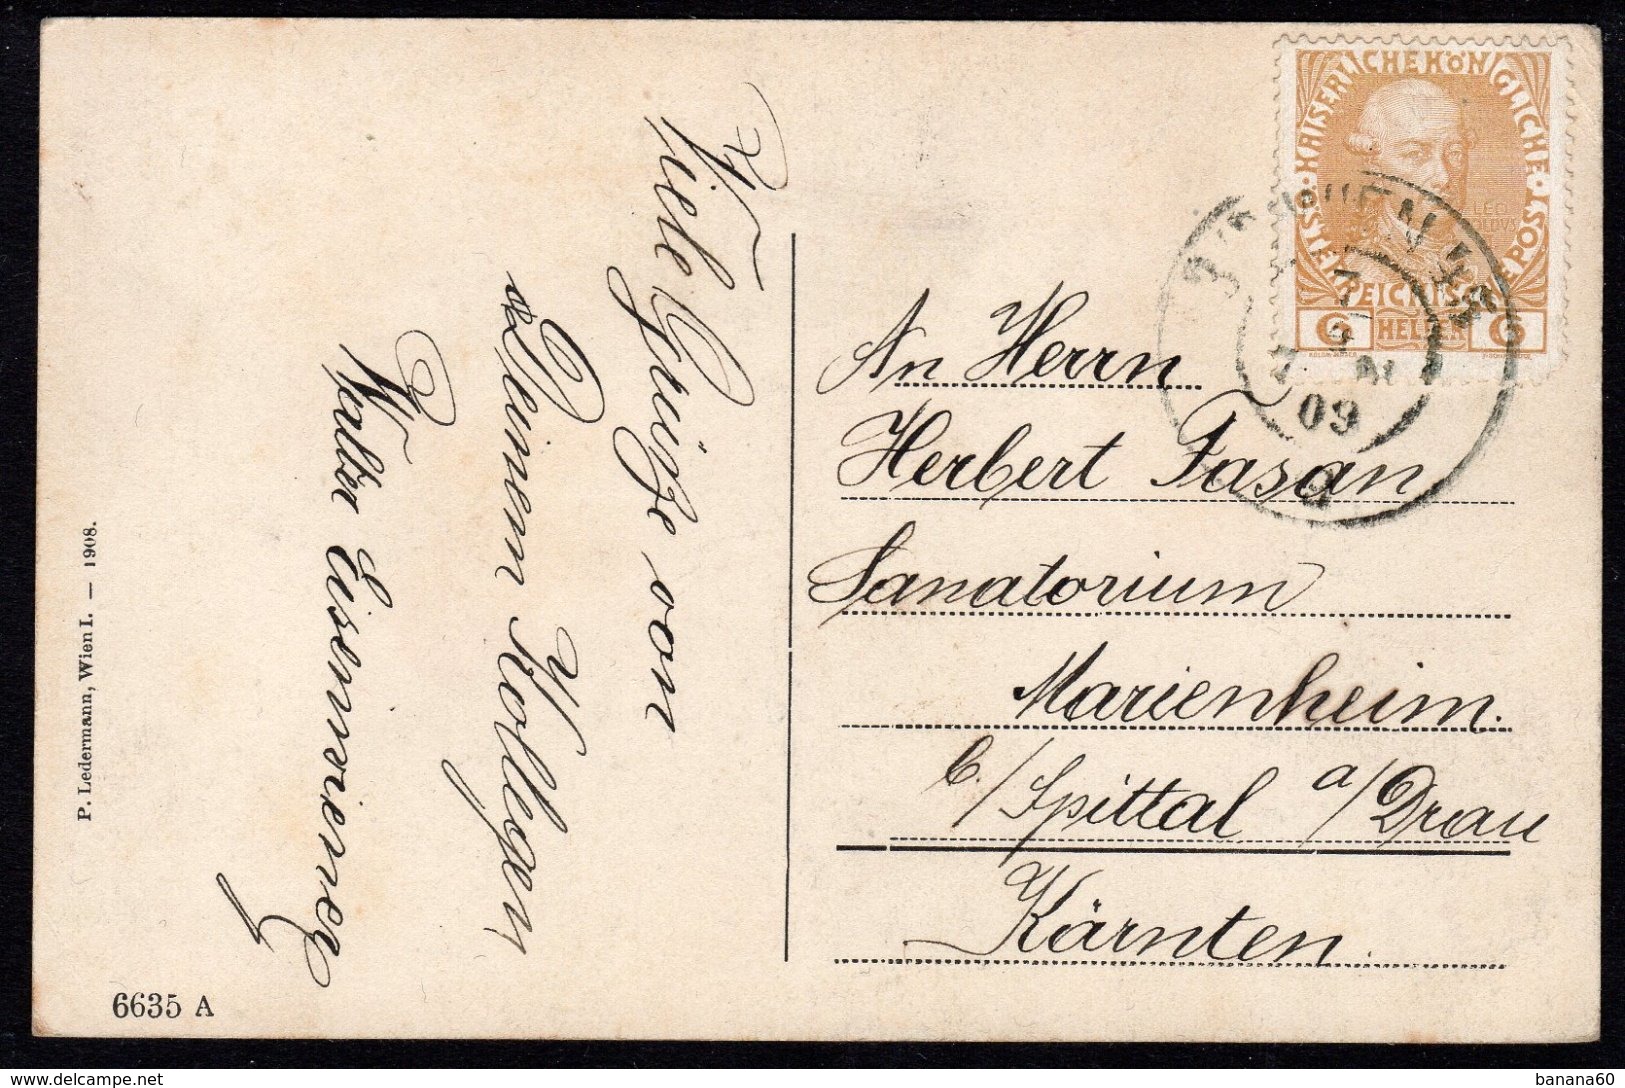 Viele Grüße von
Deinem Kollegen
Walter
An Herrn
Herbert Fasan
Sanatorium
Marienheim.
b./Spittal a/Drau
Kärnten.
P. Ledermann, Wien I. — 1908.
6635 A
KAISERLICHE KÖNIGLICHE
ÖSTERREICHISCHE POST
LEO
POLDVS
6 HELLER 6
09
banana60